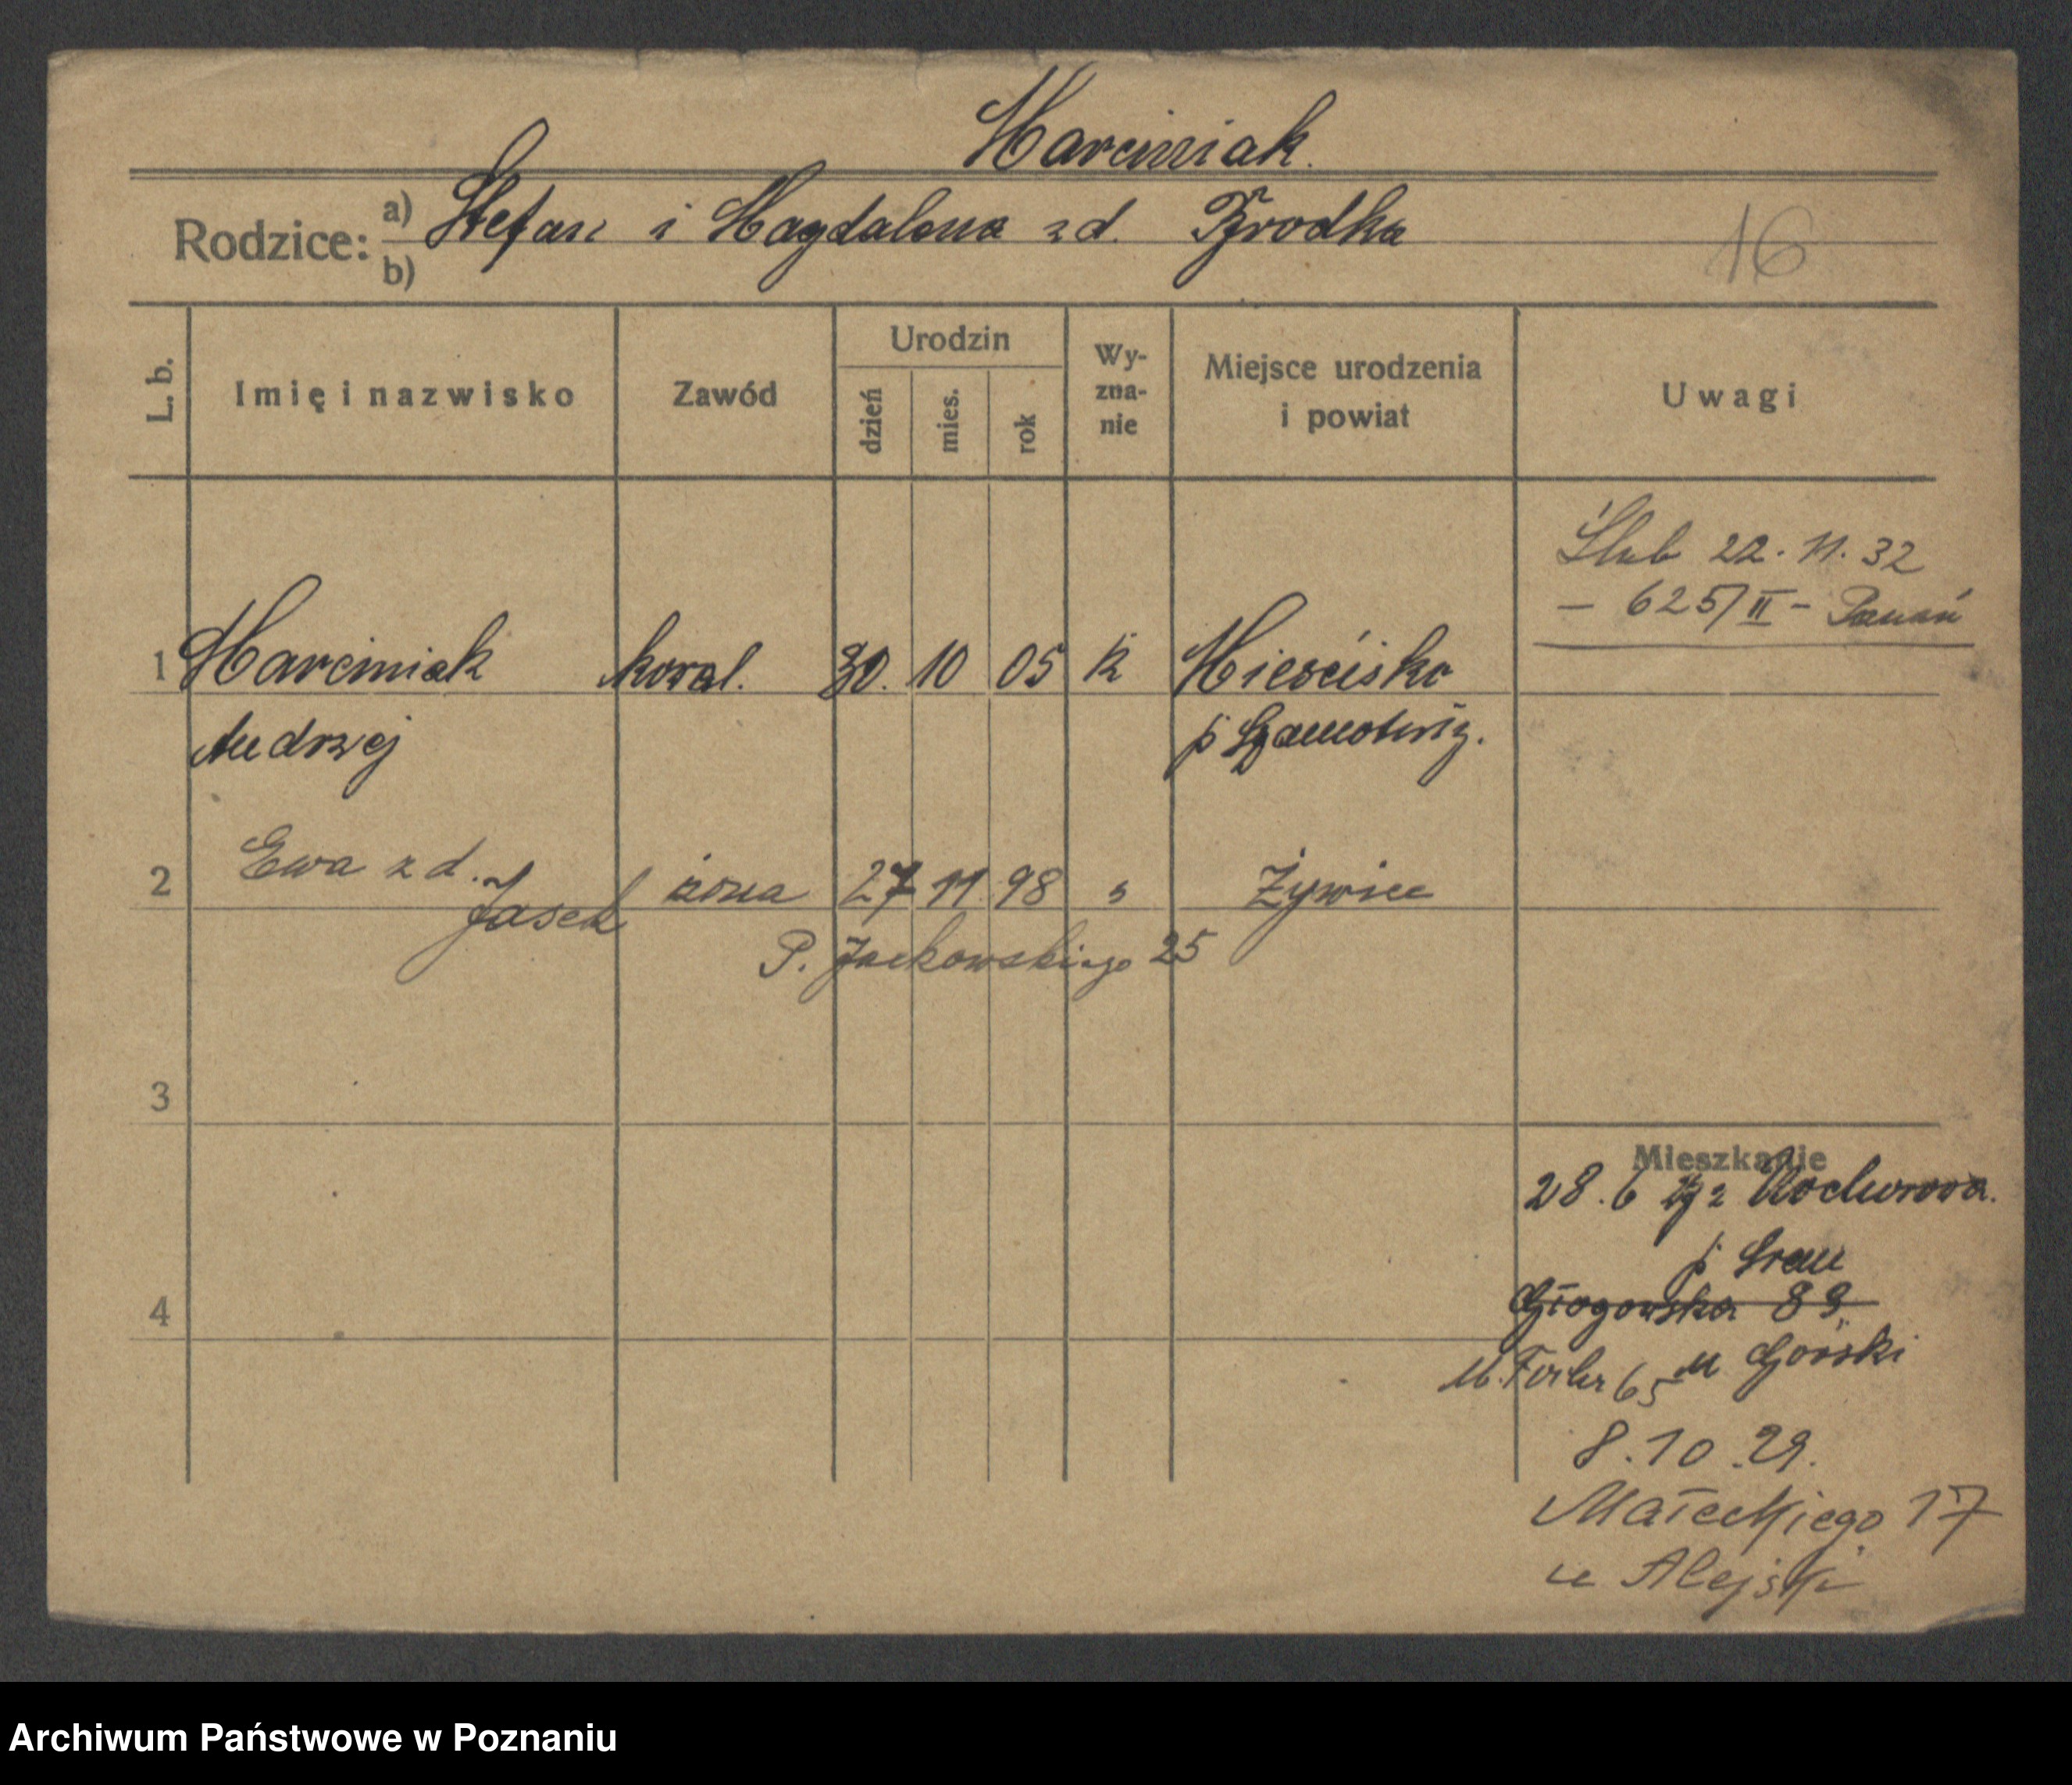 Marciniak.
Rodzice: a) Stefan i Magdalena z d. Brodka
b)
16
L. b.
Imię i nazwisko
Zawód
Urodzin
dzień
mies.
rok
Wy-
zna-
nie
Miejsce urodzenia
i powiat
Uwagi
Ślub 22. 11. 32
- 625/II - Poznań
1 Marciniak kowal. 30. 10 05 k Mieścisko
Andrzej p Szamotuły.
2 Ewa z d. Jasek żona 27 11 98 " Żywiec
P. Jackowskiego 25
3
Mieszkanie
28. 6 29 z
p Śrem
4
Głogowska 89.
u Górski
M. Focha 65
8. 10. 29.
Małeckiego 17
u Alejski
Archiwum Państwowe w Poznaniu